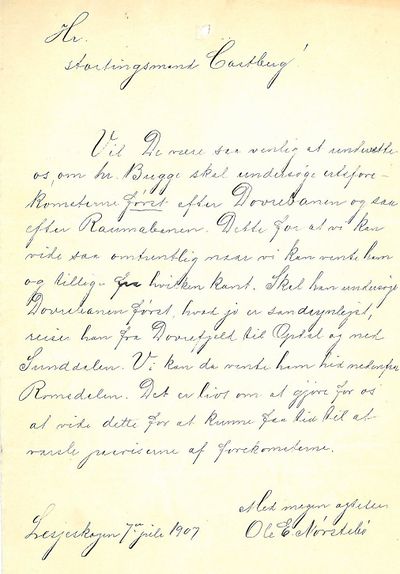 Hr.
stortingsmand Castberg!
Vil De være saa venlig at underrette
os, om hr. Bugge skal undersöge ertsfore-
komsterne först efter Dovrebanen og saa
efter Raumabanen. Dette for at vi kan
vide saa omtrentlig naar vi kan vente ham
og tillige fra hvilken kant. Skal han undersöge
Dovrebanen först, hvad jo er sandsynligst,
reiser han fra Dovrefjeld til Opdal og ned
Sunddalen. Vi kan da vente ham hid nedenfra
Romsdalen. Det er om at gjöre for os
at vide dette for at kunne faa tid til at
varsle af forekomsterne.
Med megen agtelse
Lesjeskogen 7de juli 1907
Ole E. Nørstebö